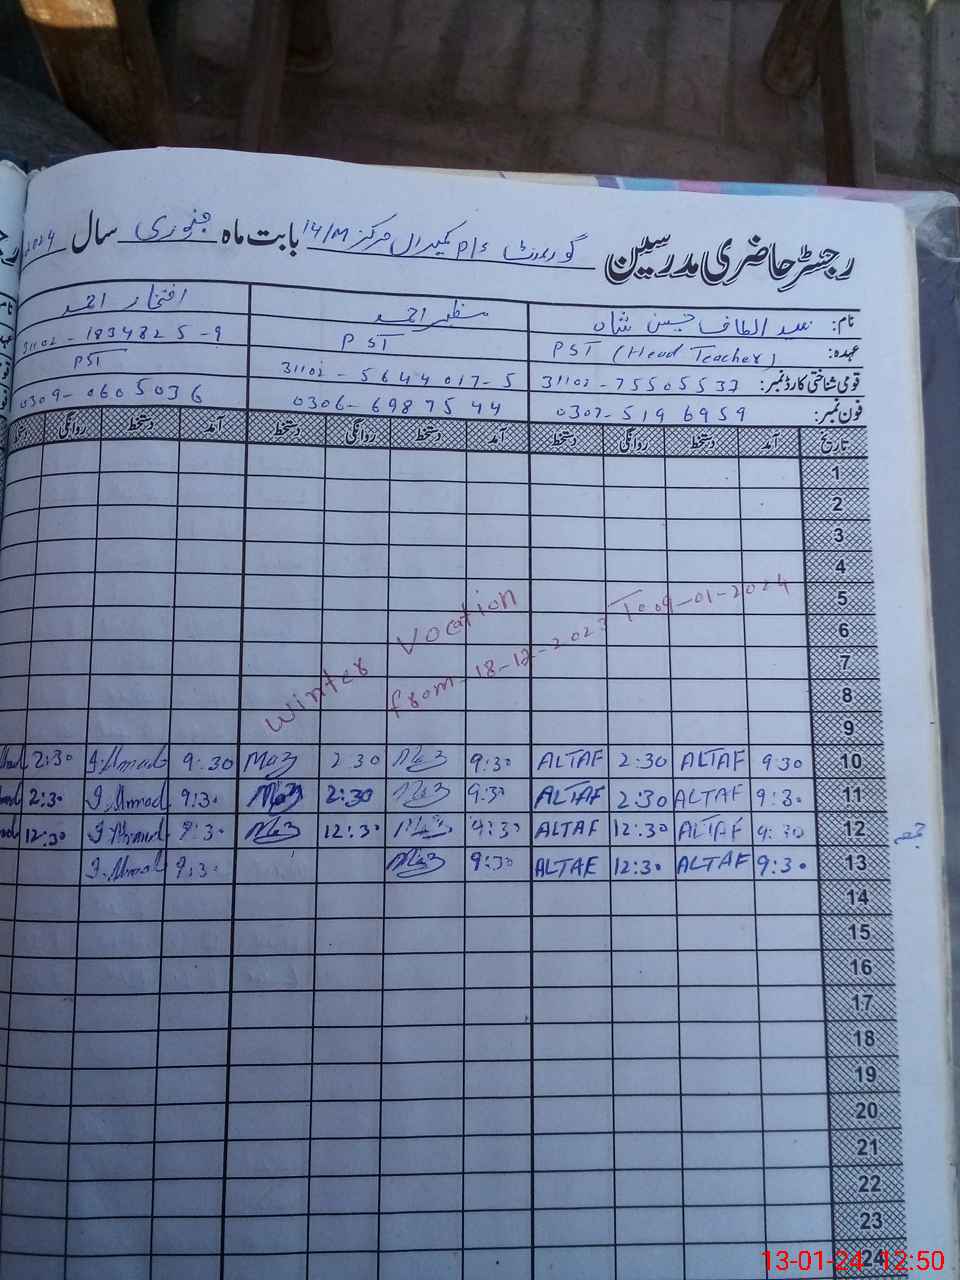 رجسٹر حاضری مدرسین گورنمنٹ P/S مرکز 14/M بابت ماہ جنوری سال 2024
نام: سید الطاف حسین شاہ مظہر احمد افتخار احمد
عہدہ: PST (Head Teacher) PST PST
قومی شناختی کارڈ نمبر: 31102-5644017-5 31102-1834825-9
فون نمبر: 0307-5196959 0306-6987544 0309-0605036
تاریخ آمد دستخط روانگی دستخط آمد دستخط روانگی دستخط آمد دستخط روانگی دستخط
1
2
3
4
5
6
7
8
9
Winter Vocation
from-18-12-2023 To 09-01-2024
10 9:30 ALTAF 2:30 ALTAF 9:30 Maz 2:30 Maz 9:30 I.Ahmad 2:30
11 9:30 ALTAF 2:30 ALTAF 9:30 Maz 2:30 Maz 9:30 I.Ahmad 2:30
12 9:30 ALTAF 12:30 ALTAF 9:30 Maz 12:30 Maz 9:30 I.Ahmad 12:30
13 9:30 ALTAF 12:30 ALTAF 9:30 Maz 9:30 I.Ahmad
14
15
16
17
18
19
20
21
22
23
24
13-01-24 12:50